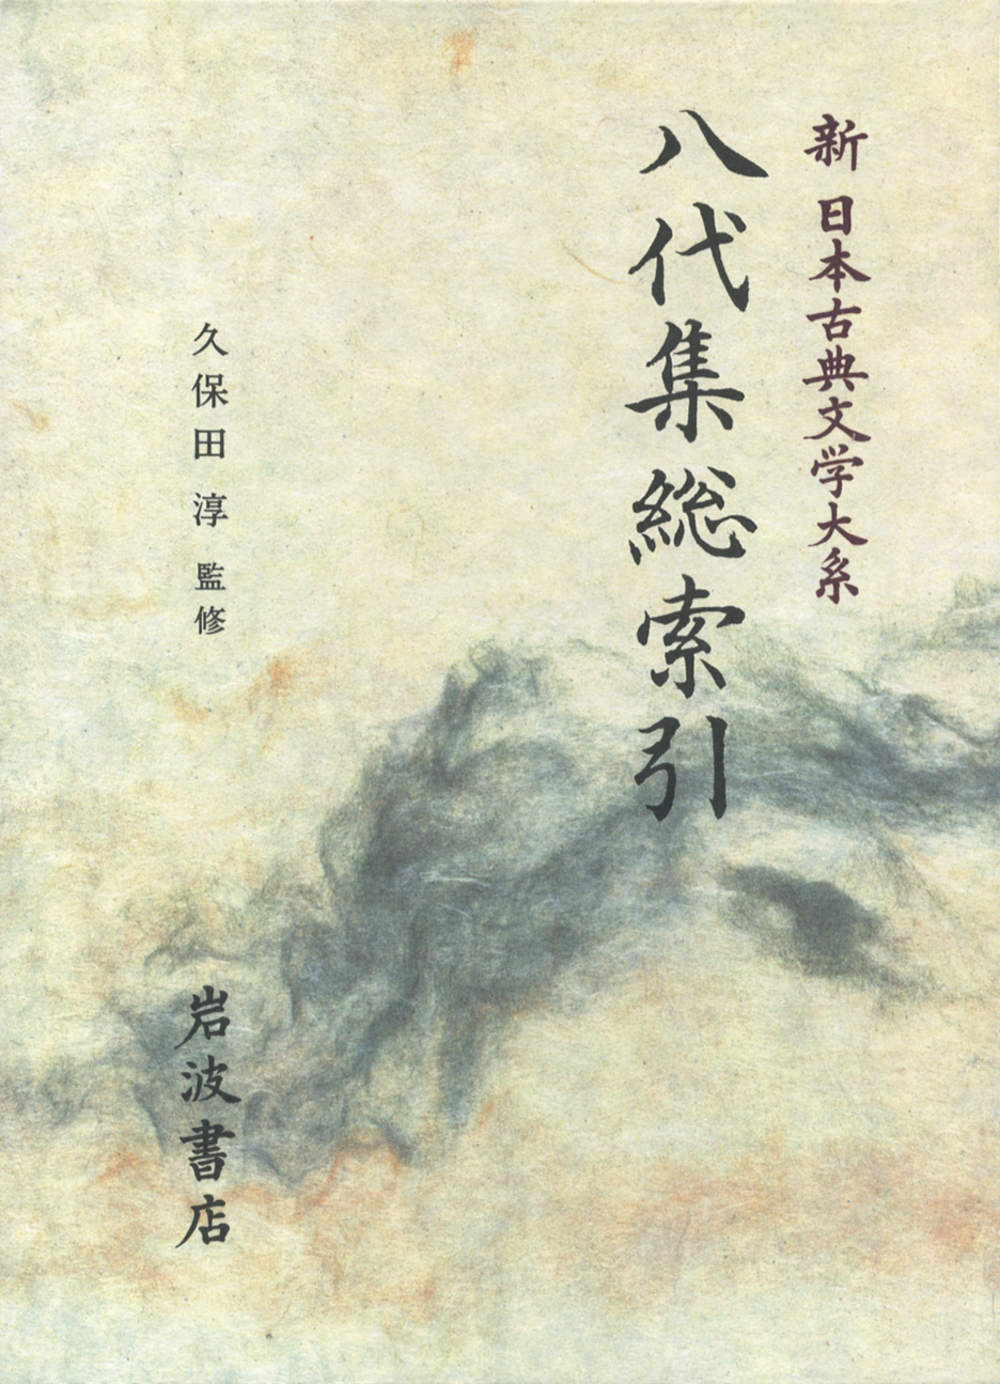 新 日本古典文学大系
八代集総索引
久保田 淳 監修
岩波書店